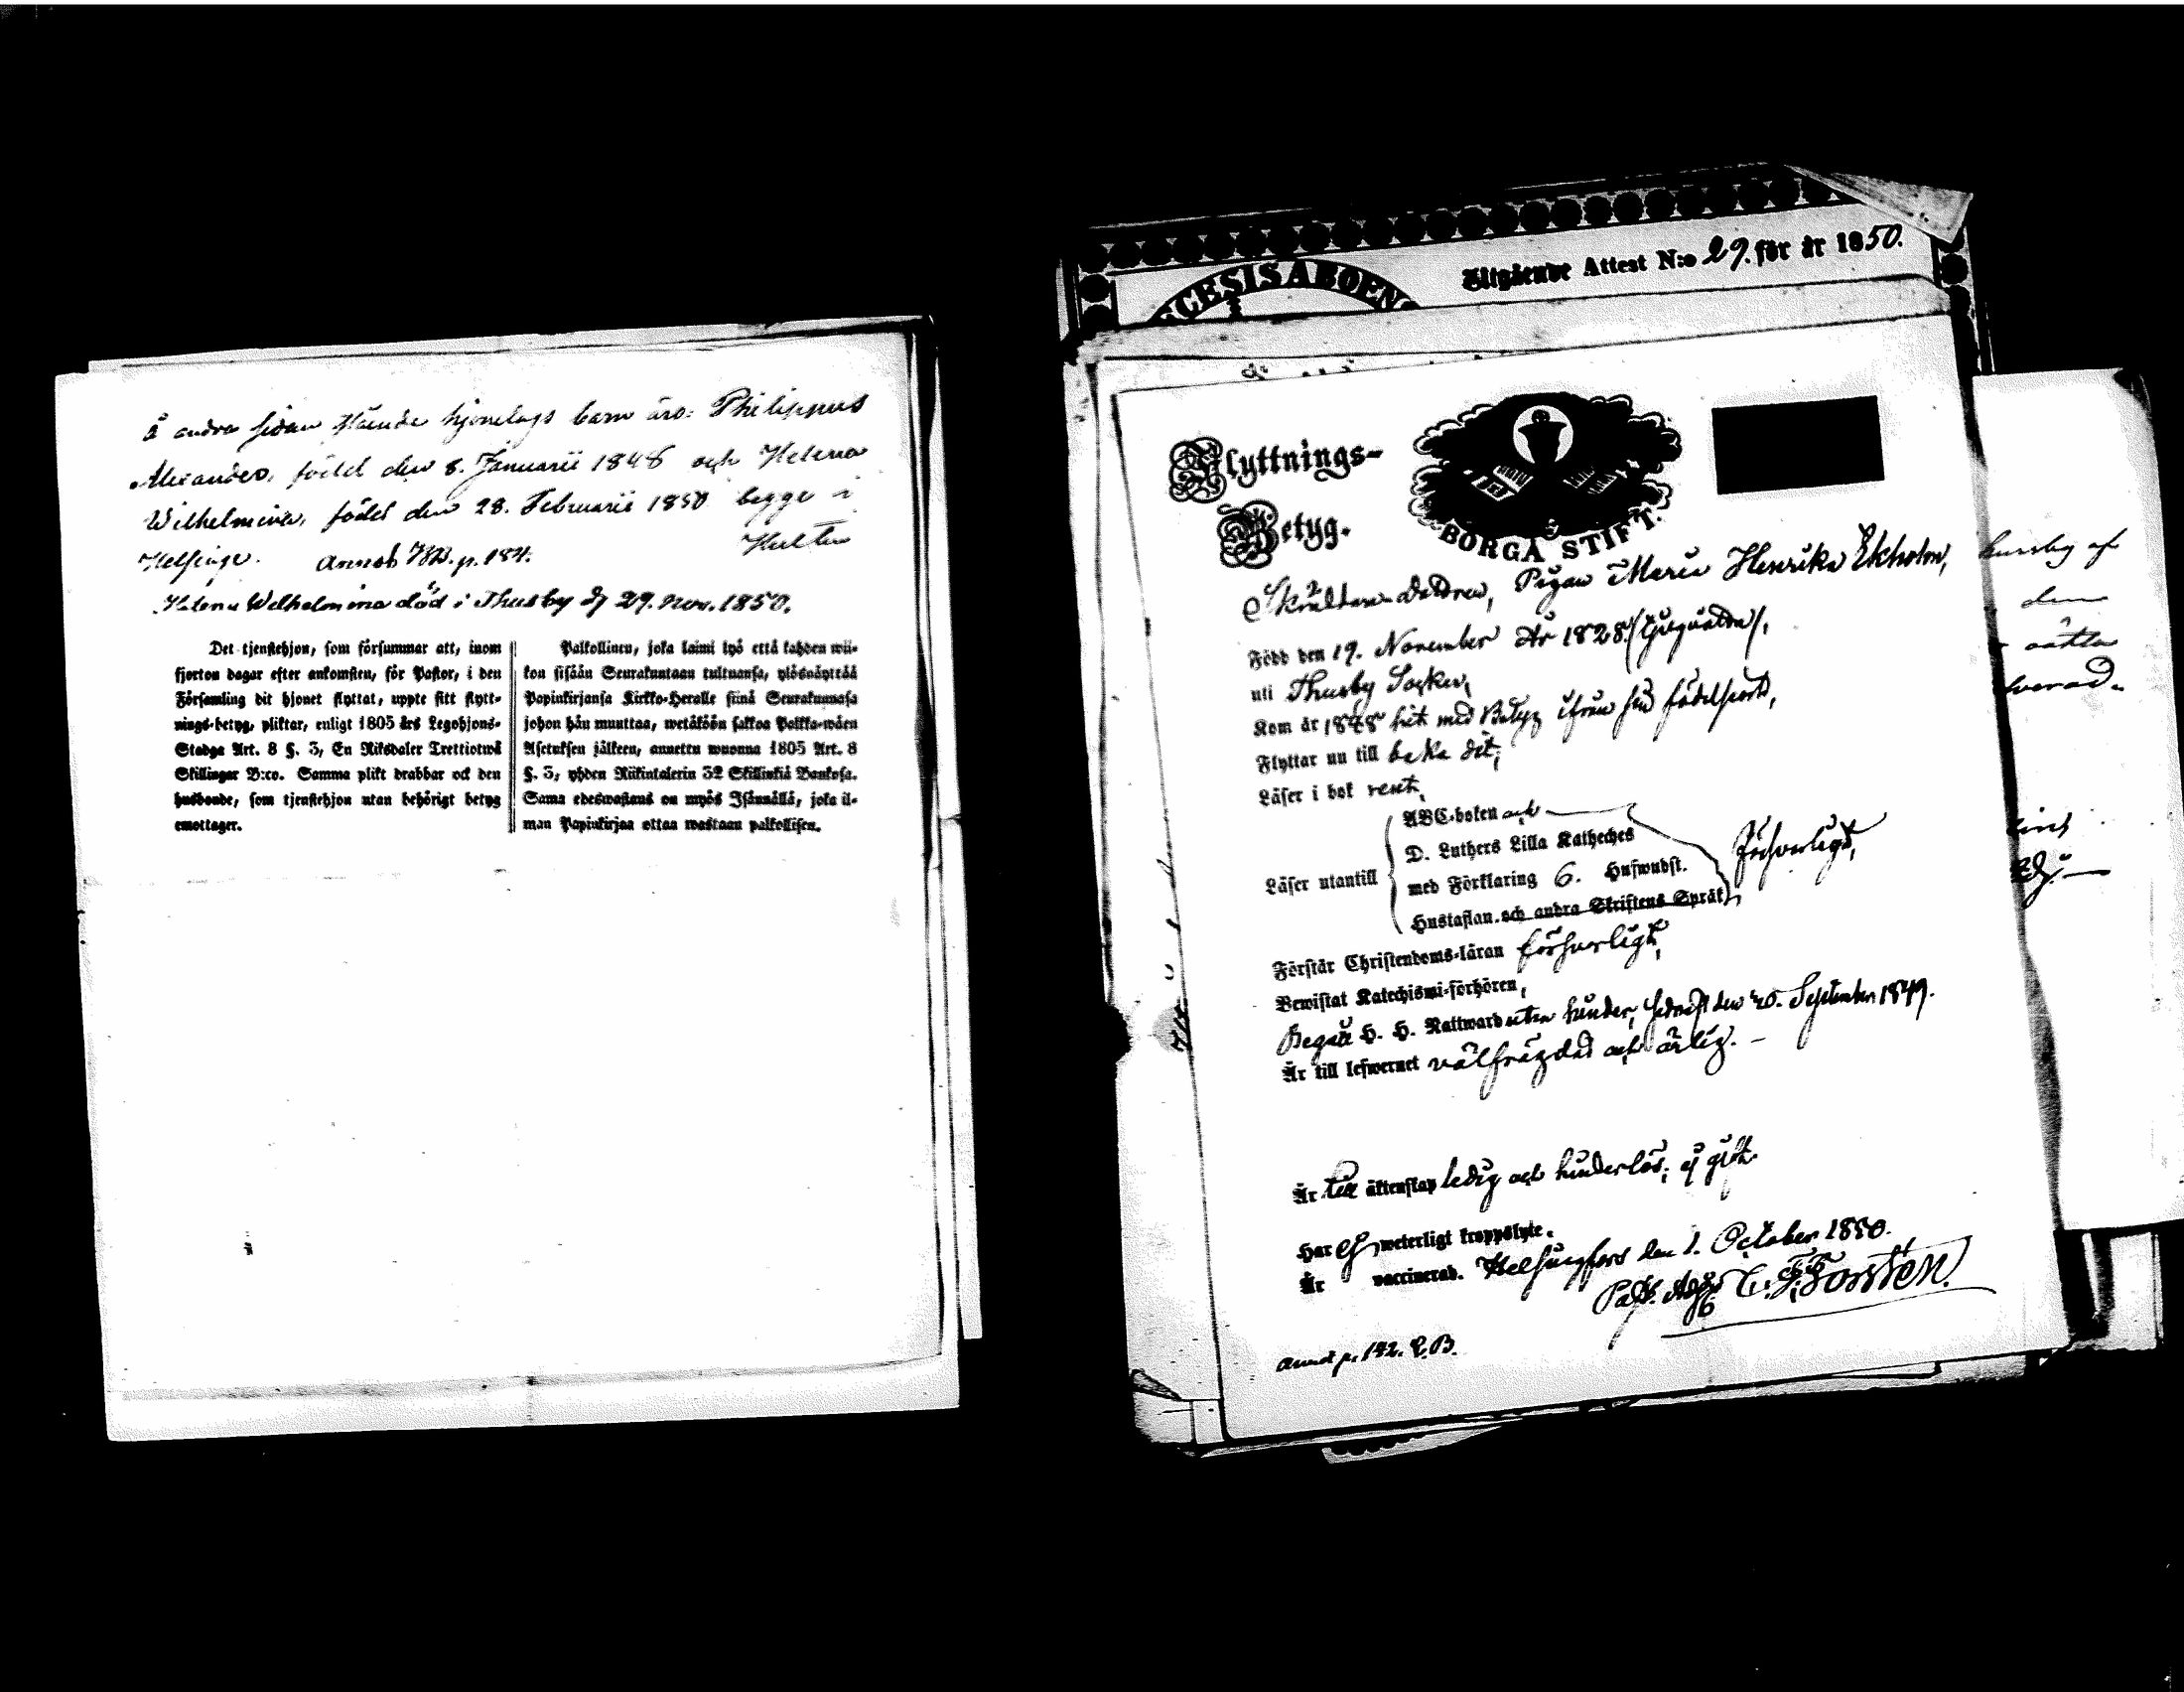 å andra sidan stående hjonelags barn äro: Philippus
Alexander, född den 8. Januarii 1848 och Helena
Wilhelmina, född den 28. Februarii 1850 begge i
Helsinge. Hultin
Annot KB. p. 184.
Helena Wilhelmina död i Thusby d 29. Nov. 1850.
Det tjenstehjon, som försummar att, inom
fjorton dagar efter ankomsten, för Pastor, i den
Församling dit hjonet flyttat, uppte sitt flytt-
nings-betyg, pliktar, enligt 1805 års Legohjons-
Stadga Art. 8 §. 3, En Riksdaler Trettiotwå
Skillingar B:co. Samma plikt drabbar ock den
husbonde, som tjenstehjon utan behörigt betyg
emottager.
Palkollinen, joka laimi lyö että kahden wii-
kon sisään Seurakuntaan tultuansa, ylösnäyttää
Papinkirjansa Kirkko-Heralle siinä Seurakunnasa
johon hän muuttaa, wetäköön sakkoa Palkka-wäen
Asetuksen jälkeen, annettu wuonna 1805 Art. 8
§. 3, yhden Riikintalerin 32 Skillinkiä Bankosa.
Sama edeswastaus on myös Isännällä, joka il-
man Papinkirjaa ottaa wastaan palkollisen.
Utgående Attest N:o 29. för år 1850.
CESIS ABOEN
Flyttnings-
Betyg.
BORGÅ STIFT.
Skräddare Dottren, Pigan Maria Henrika Ekholm,
Född den 19. November År 1828
uti Thusby Socken,
Kom år 1848 hit med Betyg ifrån sin födelseort,
Flyttar nu till baka dit,
Läser i bok rent,
Läser utantill
ABC-boken och
D. Luthers Lilla Katheches
med Förklaring 6. Hufwudst.
Hustaflan och andra Skriftens Språk
försvarligt,
Förstår Christendoms-läran försvarligt,
Bewistat Katechismi-förhören,
Begått H. H. Nattward utan hinder, sednast den 20. September 1849.
Är till lefwernet välfrägdad och ärlig. –
Är till äktenskap ledig och hinderlös, ej gift.
Har ej weterligt kroppslyte.
Är vaccinerad. Helsingfors den 1. October 1850.
C. F. Forstén.
annot p. 142. C.B.
af
den